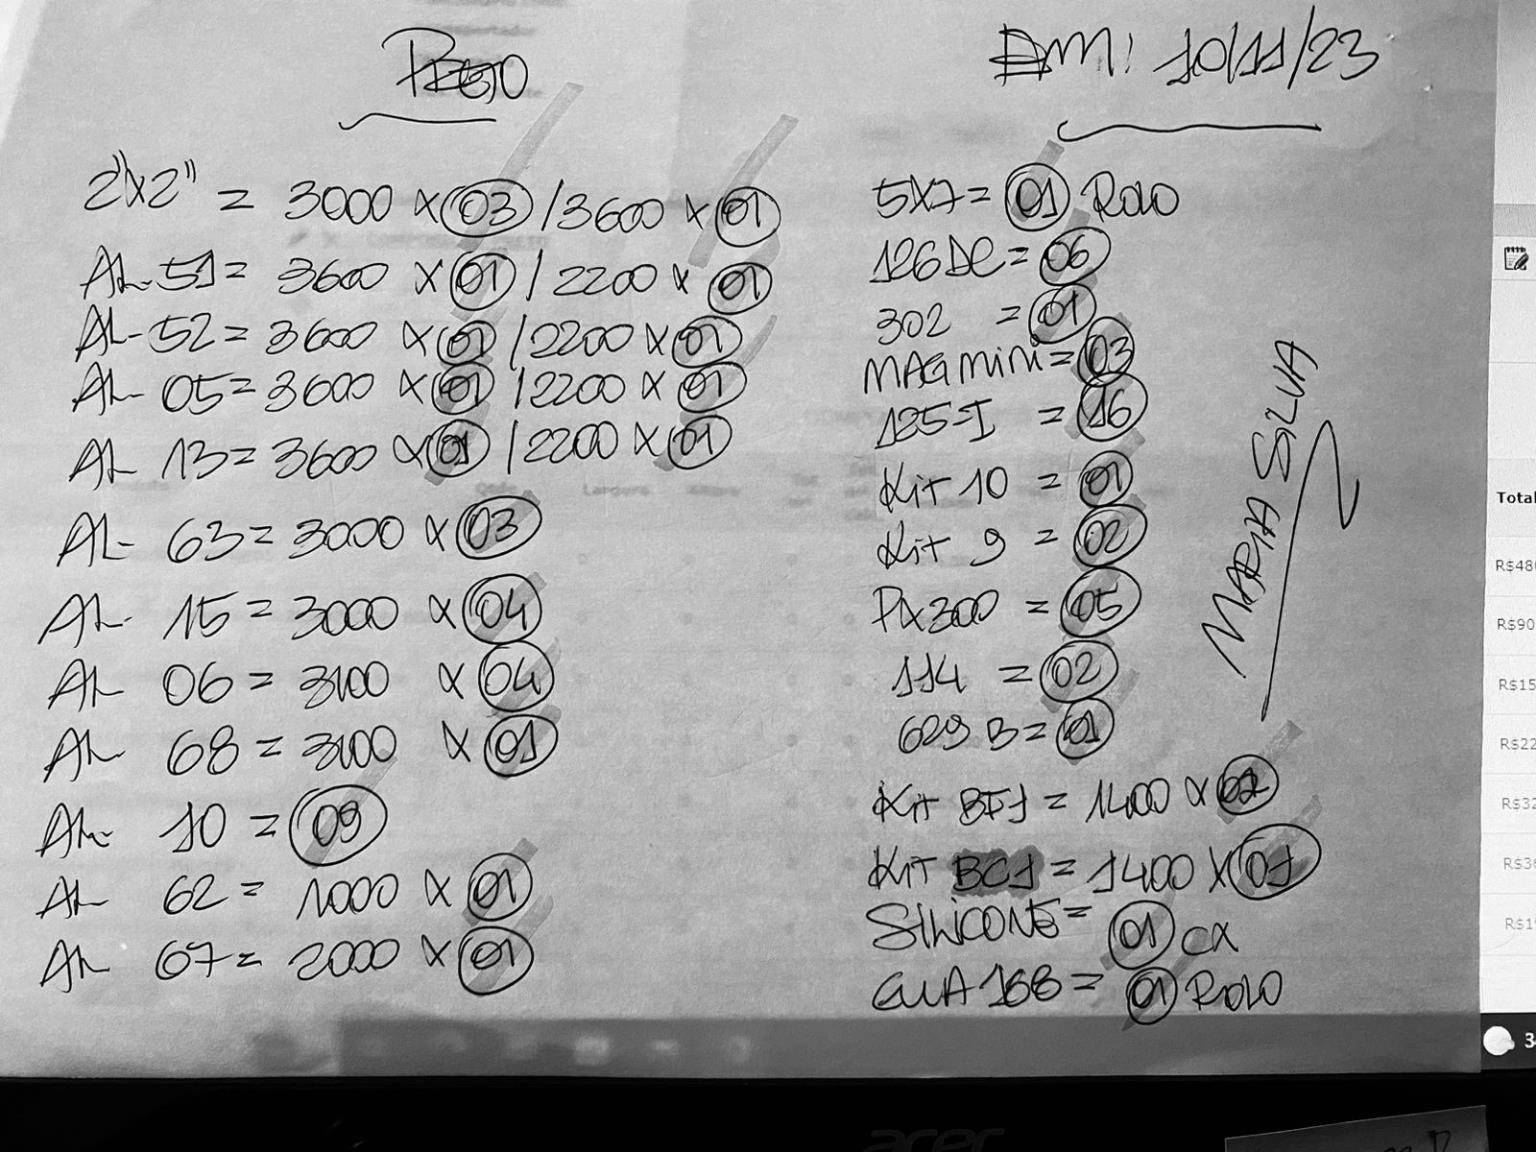 PRETO
EM: 10/11/23
2"x2" = 3000 x 03 / 3600 x 01
AL-51 = 3600 x 01 / 2200 x 01
AL-52 = 3600 x 01 / 2200 x 01
AL-05 = 3600 x 01 / 2200 x 01
AL-13 = 3600 x 01 / 2200 x 01
AL-63 = 3000 x 03
AL-15 = 3000 x 04
AL-06 = 3100 x 04
AL-68 = 3100 x 01
AL-10 = 09
AL-62 = 1000 x 01
AL-67 = 2000 x 01
5x7 = 01 ROLO
126DC = 06
302 = 01
MAG MINI = 03
125-I = 16
Kit 10 = 01
Kit 9 = 02
PAX300 = 05
114 = 02
629 B = 01
Kit BF1 = 1400 x 02
Kit BC1 = 1400 x 01
SILICONE = 01 CX
GUA 168 = 01 ROLO
MARIA SILVA
Total
R$48
R$90
R$15
R$22
R$32
R$1
acer